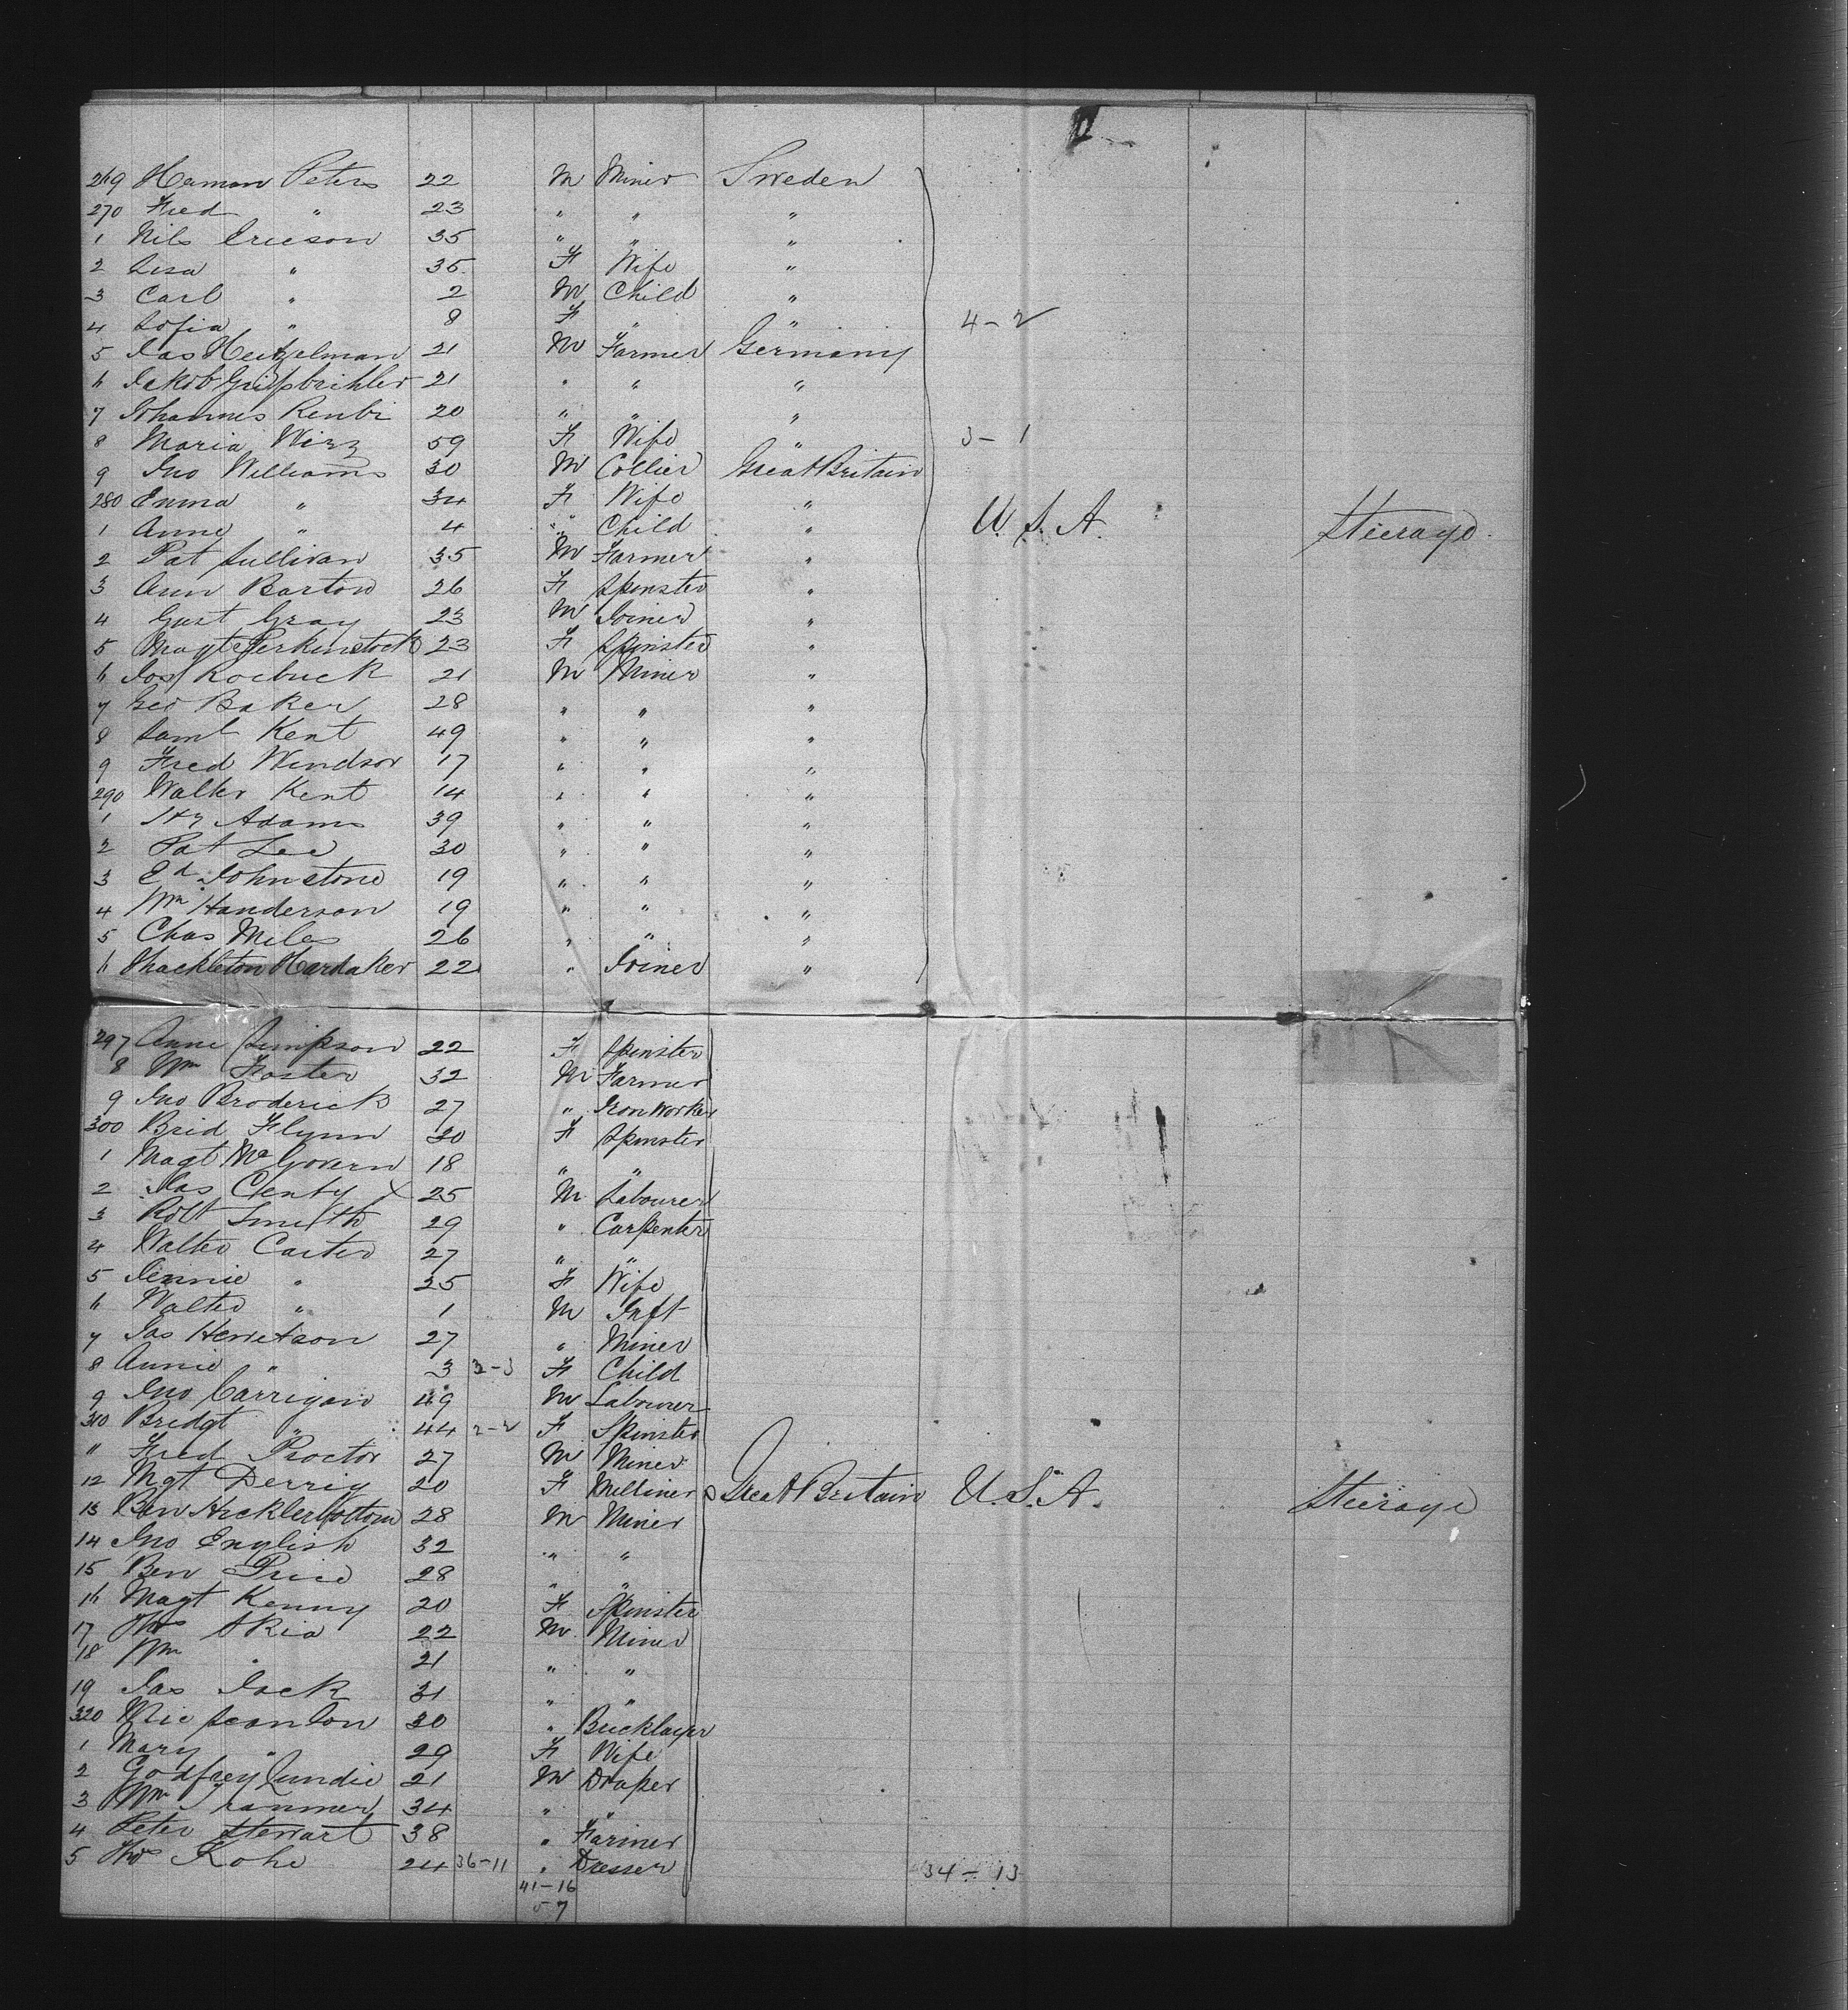 269 Herman Peters 22 M Miner Sweden
270 Fred " 23 " " "
1 Nils Ericson 35 " " "
2 Lisa " 35 F Wife "
3 Carl " 2 M Child "
4 Sofia " 8 F " " 4-2
5 Jas Heitzelman 21 M Farmer Germany
6 Jakob 21 " " "
7 Johannes Renbi 20 " " "
8 Maria Wirz 59 F Wife " 3-1
9 Jno Williams 30 M Collier Great Britain
280 Emma " 34 F Wife "
1 Anne " 4 " Child " U.S.A. Steerage
2 Pat Sullivan 35 M Farmer "
3 Ann Barton 26 F Spinster "
4 Gust Gray 23 M Joiner "
5 Magt Perkinstock 23 F Spinster "
6 Jos Roebuck 21 M Miner "
7 Geo Baker 28 " " "
8 Saml Kent 49 " " "
9 Fred Windsor 17 " " "
290 Walter Kent 14 " " "
1 Hy Adams 39 " " "
2 Pat Lee 30 " " "
3 Ed Johnstone 19 " " "
4 Wm Handerson 19 " " "
5 Chas Miles 26 " " "
6 Shackleton Hardaker 22 " Joiner "
297 Anne Simpson 22 F Spinster
8 Wm Foster 32 M Farmer
9 Jno Broderick 27 " Iron Worker
300 Brid Flynn 30 F Spinster
1 Magt McGovern 18 " "
2 Jas Clenty x 25 M Labourer
3 Robt Smith 29 " Carpenter
4 Walter Carter 27 " "
5 Jennie " 25 F Wife
6 Walter " 1 M Inft
7 Jas Hewetson 27 " Miner
8 Annie " 3 3-3 F Child
9 Jno Carrigan 49 M Labourer
310 Bridgt " 44 2-2 F Spinster
" Fred Proctor 27 M Miner
12 Mgt Derrig 20 F Milliner Great Britain U.S.A. Steerage
13 Ben Hicklerbottom 28 M Miner
14 Jno English 32 " "
15 Ben Price 28 " "
16 Magt Kenny 20 F Spinster
17 Thos Skea 22 M Miner
18 Wm " 21 " "
19 Jas Jack 31 " "
320 Mic Scanlon 30 " Bricklayer
1 Mary " 29 F Wife
2 Godfrey Cundie 21 M Draper
3 Wm Tranmer 34 " "
4 Peter Stewart 38 " Farmer
5 Thos Kohe 24 36-11 " Dresser 34-13
41-16
57